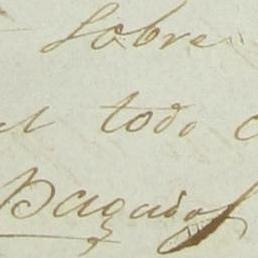 Sobre
el todo
Pagados